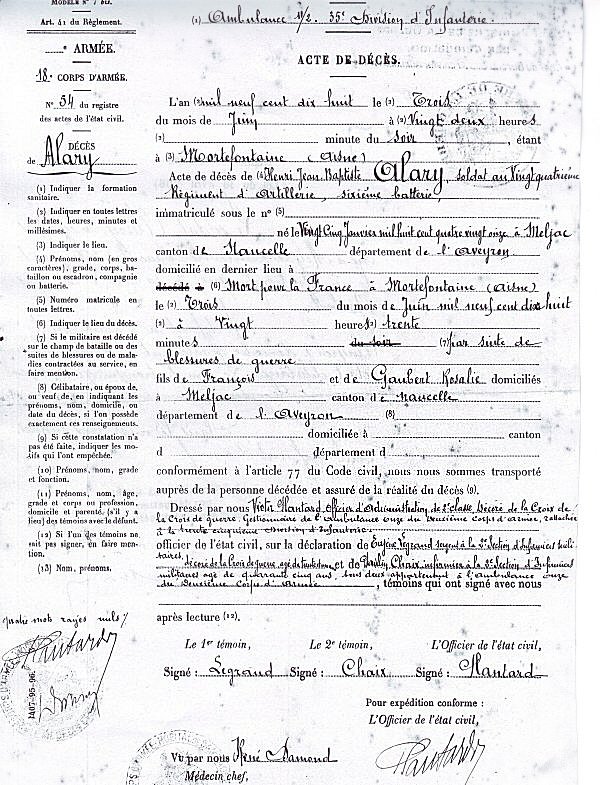 MODÈLE N° 7 bis.
Art. 41 du Règlement.
ARMÉE.
18e CORPS D'ARMÉE.
N° 54 du registre
des actes de l'état civil.
DÉCÈS
de Alary
(1) Indiquer la formation
sanitaire.
(2) Indiquer en toutes lettres
les dates, heures, minutes et
millésimes.
(3) Indiquer le lieu.
(4) Prénoms, nom (en gros
caractères), grade, corps, ba-
taillon ou escadron, compagnie
ou batterie.
(5) Numéro matricule en
toutes lettres.
(6) Indiquer le lieu du décès.
(7) Si le militaire est décédé
sur le champ de bataille ou des
suites de blessures ou de mala-
dies contractées au service, en
faire mention.
(8) Célibataire, ou époux de,
ou veuf de, en indiquant les
prénoms, nom, domicile, ou
date du décès, si l'on possède
exactement ces renseignements.
(9) Si cette constatation n'a
pas été faite, indiquer les mo-
tifs qui l'ont empêchée.
(10) Prénoms, nom, grade
et fonction.
(11) Prénoms, nom, âge,
grade et corps ou profession,
domicile et parenté (s'il y a
lieu) des témoins avec le défunt.
(12) Si l'un des témoins ne
sait pas signer, en faire men-
tion.
(13) Nom, prénoms.
quatre mots rayés nuls
Plantard
1407-95-96.
(1) Ambulance 11/2 35e Division d'Infanterie.
ACTE DE DÉCÈS.
L'an (2) mil neuf cent dix huit le (2) Trois
du mois de Juin à (2) Vingt deux heures
(2) minute du soir, étant
à (3) Mortefontaine (Aisne)
Acte de décès de (4) Henri Jean Baptiste Alary, soldat au Vingt quatrième
Régiment d'Artillerie, sixième batterie,
immatriculé sous le n° (5)
né le Vingt Cinq Janvier mil huit cent quatre vingt onze à Meljac
canton de Naucelle département de l'Aveyron
domicilié en dernier lieu à
décédé à (6) Mort pour la France à Mortefontaine (Aisne)
le (2) Trois du mois de Juin mil neuf cent dix huit
(2) à Vingt heures (2) trente
minutes du soir (7) par suite de
blessures de guerre
fils de François et de Gaubert Rosalie domiciliés
à Meljac canton de Naucelle
département de l'Aveyron (8)
domiciliée à canton
d département d
conformément à l'article 77 du Code civil, nous nous sommes transporté
auprès de la personne décédée et assuré de la réalité du décès (9).
Dressé par nous Victor Plantard, Officier d'Administration de 2e classe, Décoré de la Croix de
la Croix de guerre, Gestionnaire de l'ambulance onze du Deuxième Corps d'Armée, rattachée
à la trente cinquième Division d'Infanterie
officier de l'état civil, sur la déclaration de Eugène Legrand sergent à la Section d'Infirmiers mili-
taires, décoré de la Croix de guerre, agé de et de Chaix infirmier à la Section d'Infirmiers
militaires agé de quarante cinq ans, tous deux appartenant à l'ambulance onze
du Deuxième Corps d'Armée, témoins qui ont signé avec nous
après lecture (12).
Le 1er témoin, Le 2e témoin, L'Officier de l'état civil,
Signé : Legrand Signé : Chaix Signé : Plantard
Pour expédition conforme :
L'Officier de l'état civil,
Plantard
Vu par nous René Damond
Médecin chef,